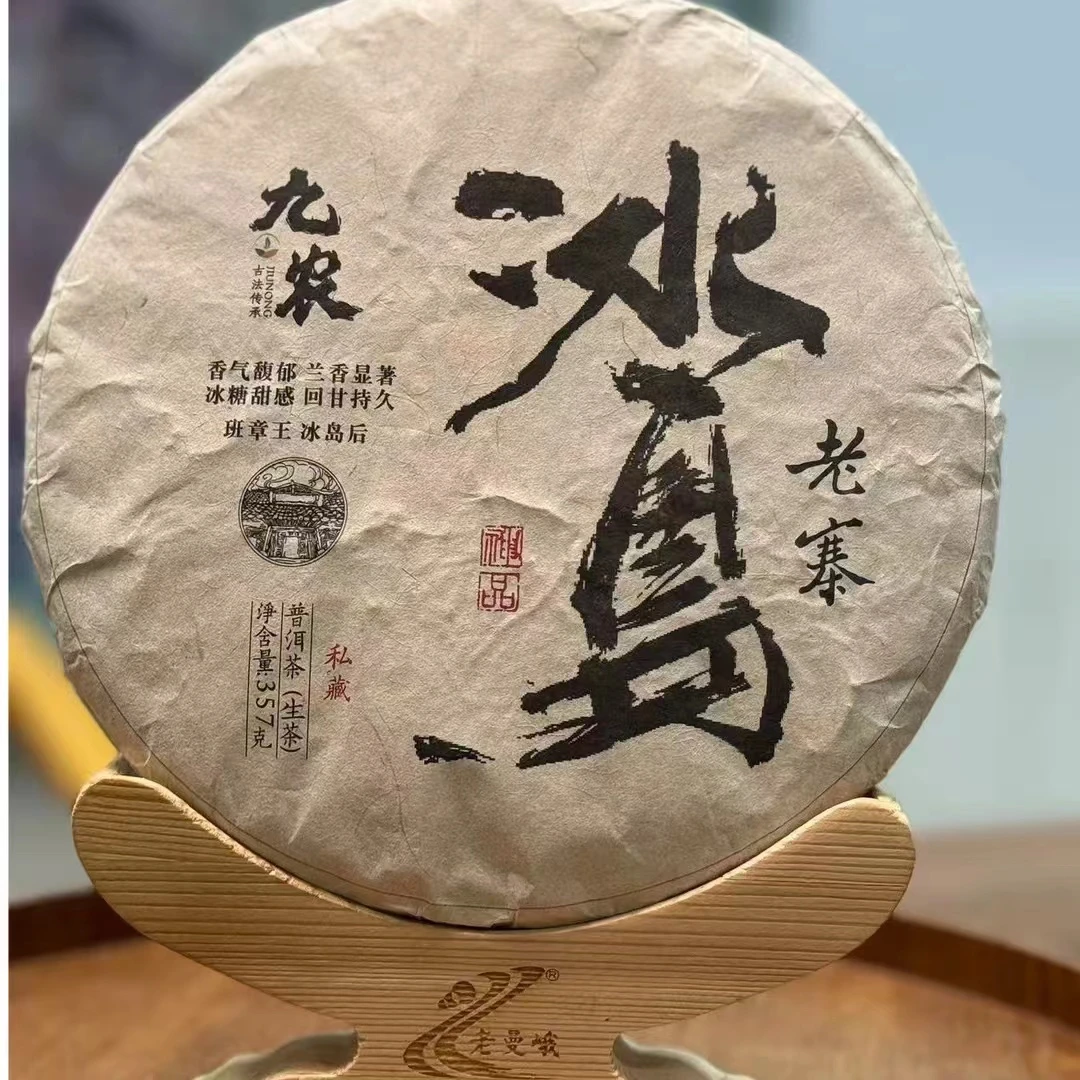 冰岛
老寨
九农
古法传承
JIUNONG
香气馥郁 兰香显著
冰糖甜感 回甘持久
班章王 冰岛后
禅品
私藏
普洱茶(生茶)
淨含量:357克
老曼峨
®